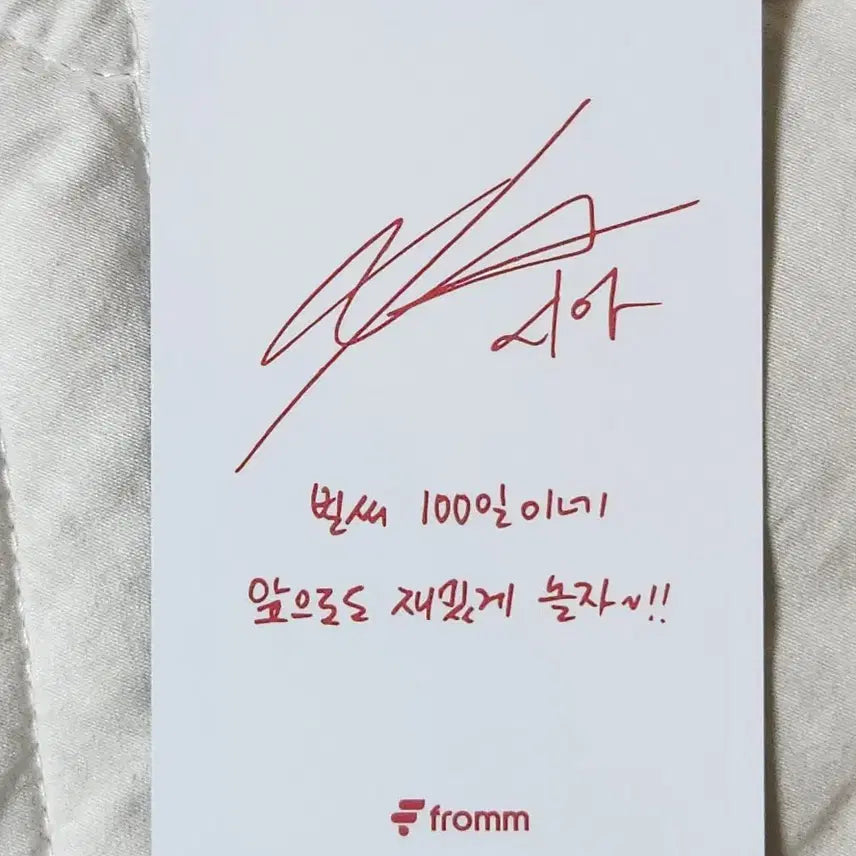 시아
벌써 100일이네
앞으로도 재밌게 놀자~!!
fromm